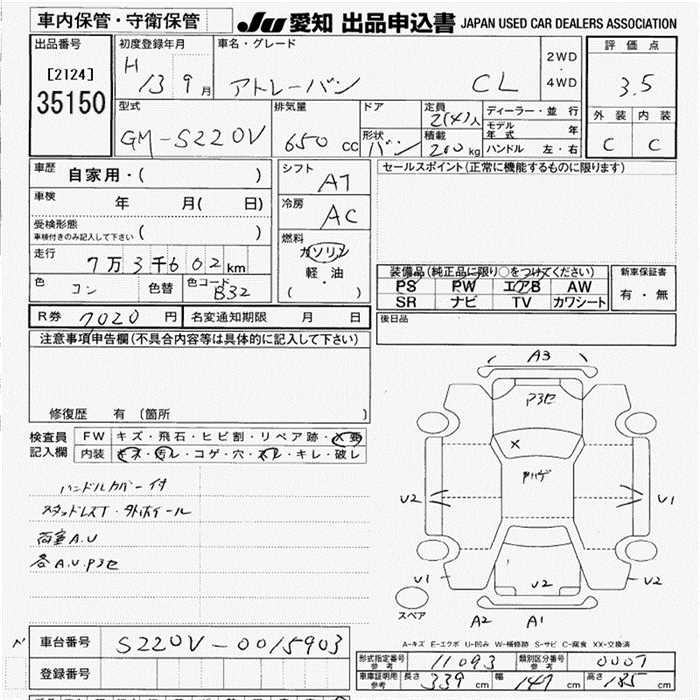 車内保管・守衛保管
JU 愛知 出品申込書 JAPAN USED CAR DEALERS ASSOCIATION
出品番号 [2124] 35150
初度登録年月 H 13 9月
車名・グレード アトレーバン CL
2WD ・ 4WD
評価点 3.5
外装 内装
C C
型式 GM-S220V
排気量 650 cc
ドア
形状 バン
定員 2(4)人
積載 200 kg
ディーラー・並行
モデル年式 年
ハンドル 左・右
車歴 自家用・( )
車検 年 月( 日)
受検形態 車検付きのみ記入して下さい ( )
走行 7万3千602km
色 コン 色替 色コード B32
シフト AT
冷房 AC
燃料 ガソリン
軽・油
( )
セールスポイント(正常に機能するものに限ります)
装備品(純正品に限り○をつけてください)
PS PW エアB AW
SR ナビ TV カワシート
新車保証書
有・無
後日品
R券 7020 円 名変通知期限 月 日
注意事項申告欄(不具合内容等は具体的に記入して下さい)
修復歴 有(箇所 )
検査員記入欄
FW キズ・飛石・ヒビ割・リペア跡・X要
内装 キズ・汚レ・コゲ・穴・スレ・キレ・破レ
ハンドルカバー付
スタッドレスT・外ホイール
荷室A.U
各A.U.P3セ
A3
P3セ
X
Pハゲ
U2
U1
U1
U2
U2
スペア
A2 A1
A-キズ E-エクボ U-凹み W-補修跡 S-サビ C-腐食 XX-交換済
車台番号 S220V-0015903
登録番号
形式指定番号 参考 11093 類別区分番号 参考 0007
車庫証明用 参考 長さ 339 cm 幅 147 cm 高さ 185 cm